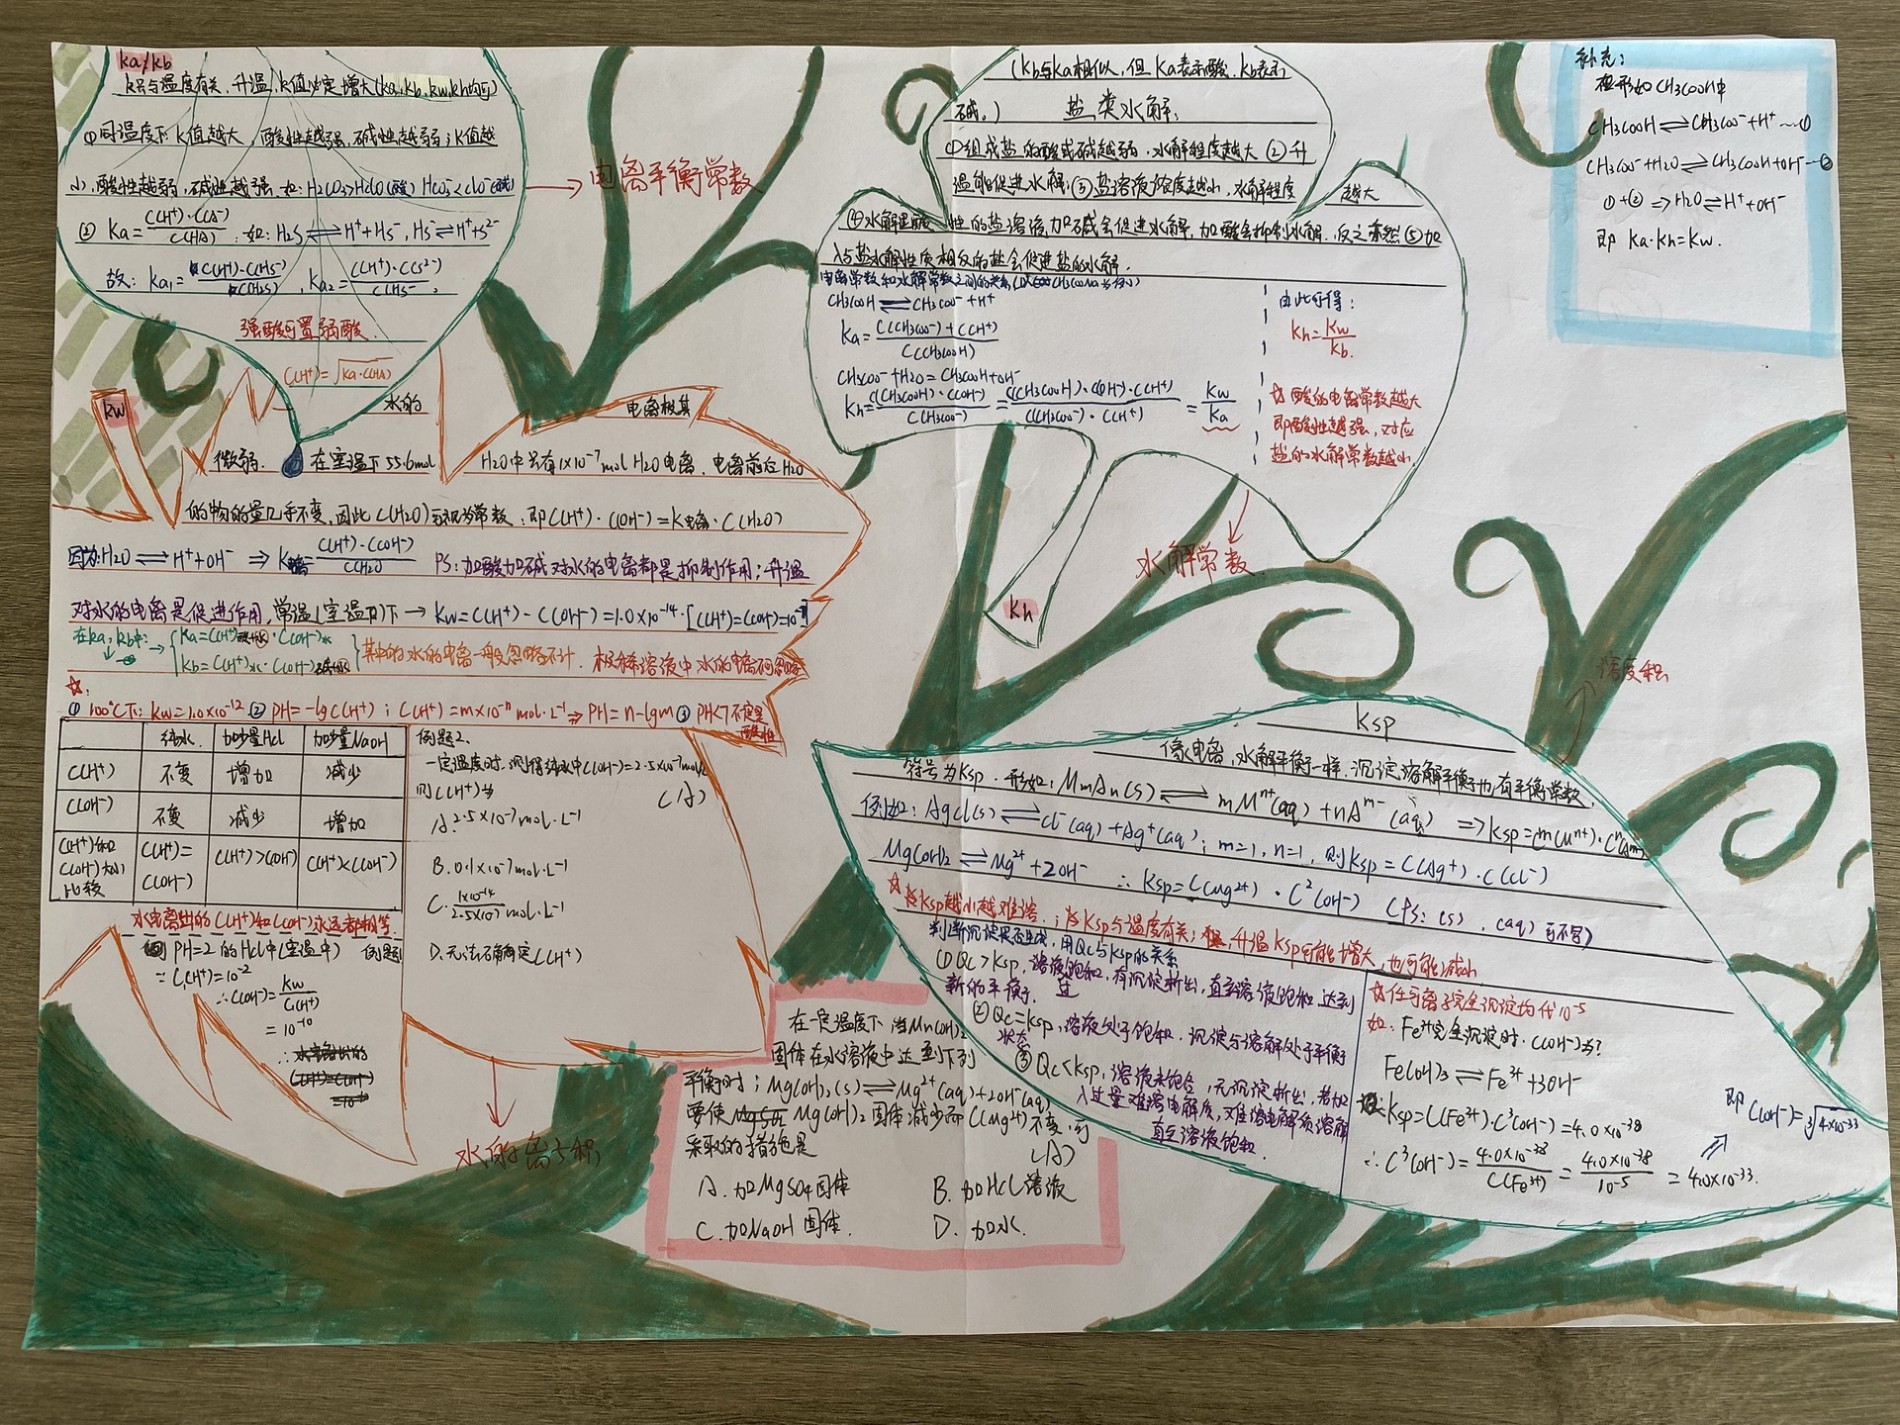 ka/kb
k只与温度有关,升温,k值必定增大(ka,kb,kw,kh均可)
①同温度下k值越大,酸性越强,碱性越弱;k值越
小,酸性越弱,碱性越强.如:H2CO3>HClO(酸) HCO3-<ClO-(碱)
② Ka=C(H+)·C(A-)/C(HA);如:H2S⇌H++HS-,HS-⇌H++S2-
故:Ka1=C(H+)·C(HS-)/C(H2S),Ka2=C(H+)·C(S2-)/C(HS-)
强酸可置弱酸.
C(H+)=√Ka·C(HA)
→电离平衡常数
kw
水的
电离极其
微弱.在室温下55.6mol
H2O中只有1×10-7mol H2O电离.电离前后H2O
的物的量几乎不变,因此C(H2O)可视为常数,即C(H+)·C(OH-)=K电离·C(H2O)
因为:H2O⇌H++OH- ⇒K电离=C(H+)·C(OH-)/C(H2O) PS:加酸加碱对水的电离都是抑制作用;升温
对水的电离是促进作用,常温(室温)下→Kw=C(H+)-C(OH-)=1.0×10-14·[C(H+)=C(OH-)=10-7]
在ka,kb中:→
Ka=C(H+)·C(OH-)水
Kb=C(H+)水·C(OH-)
其中的水的电离一般忽略不计.极稀溶液中水的电离不可忽略
☆:
①100℃下:Kw=1.0×10-12 ②PH=-lgC(H+);C(H+)=m×10-n mol·L-1⇒PH=n-lgm ③PH<7不一定是
酸性
纯水. 加少量HCl 加少量NaOH
C(H+) 不变 增加 减少
C(OH-) 不变 减少 增加
C(H+)和C(OH-)大小比较 C(H+)=C(OH-) C(H+)>C(OH-) C(H+)<C(OH-)
水电离出的C(H+)和C(OH-)永远都相等.
PH=2的HCl中(室温中) 例题1
∵C(H+)=10-2
∴C(OH-)=Kw/C(H+)
=10-10
例题2.
一定温度时,测得纯水中C(OH-)=2.5×10-7mol/L
则C(H+)为 (A)
A.2.5×10-7mol·L-1
B.0.1×10-7mol·L-1
C.1×10-14/2.5×10-7 mol·L-1
D.无法确定C(H+)
水的离子积
(kb与ka相似,但ka表示酸,kb表示
碱。) 盐类水解:
①组成盐的酸或碱越弱,水解程度越大②升
温能促进水解;③盐溶液浓度越小,水解程度
越大
④水解显酸性的盐溶液,加碱会促进水解,加酸会抑制水解.反之亦然⑤加
入与盐水解性质相反的盐会促进盐的水解.
电离常数和水解常数之间的关系(以CH3COONa为例)
CH3COOH⇌CH3COO-+H+
Ka=C(CH3COO-)+C(H+)/C(CH3COOH)
CH3COO-+H2O=CH3COOH+OH-
Kh=C(CH3COOH)·C(OH-)/C(CH3COO-)=C(CH3COOH)·C(OH-)·C(H+)/C(CH3COO-)·C(H+)=Kw/Ka
由此可得:
Kh=Kw/Kb.
☆酸的电离常数越大
即酸性越强,对应
盐的水解常数越小
水解常数
kh
补充:
在形如CH3COOH中
CH3COOH⇌CH3COO-+H+…①
CH3COO-+H2O⇌CH3COOH+OH-…②
①+②⇒H2O⇌H++OH-
即 Ka·Kh=Kw.
溶度积
Ksp
像电离,水解平衡一样,沉淀溶解平衡也有平衡常数,
符号为Ksp.形如:MmAn(s)⇌mMn+(aq)+nAm-(aq) ⇒Ksp=Cm(Mn+)·Cn(Am-)
例如:AgCl(s)⇌Cl-(aq)+Ag+(aq);m=1,n=1,则Ksp=C(Ag+)·C(Cl-)
Mg(OH)2⇌Mg2++2OH- ∴Ksp=C(Mg2+)·C2(OH-) (PS:(s),(aq)可不写)
☆Ksp越小越难溶.;☆Ksp与温度有关;升温Ksp可能增大,也可能减小
判断沉淀是否生成,用Qc与Ksp的关系
①Qc>Ksp,溶液过饱和,有沉淀析出,直至溶液饱和,达到
新的平衡.
②Qc=Ksp,溶液处于饱和.沉淀与溶解处于平衡
状态
③Qc<Ksp,溶液未饱合,无沉淀析出,若加
入过量难溶电解质,难溶电解质溶解
直至溶液饱和.
☆任何离子完全沉淀均代10-5
如:Fe3+完全沉淀时.C(OH-)为?
Fe(OH)3⇌Fe3++3OH-
Ksp=C(Fe3+)·C3(OH-)=4.0×10-38
∴C3(OH-)=4.0×10-38/C(Fe3+)=4.0×10-38/10-5=4.0×10-33.
即C(OH-)=3√4×10-33
在一定温度下 当Mn(OH)2
固体在水溶液中达到下列
平衡时;Mg(OH)2(s)⇌Mg2+(aq)+2OH-(aq)
要使 Mg(OH)2固体减少而C(Mg2+)不变,可
采取的措施是 (A)
A.加MgSO4固体 B.加HCl溶液
C.加NaOH固体. D.加水.